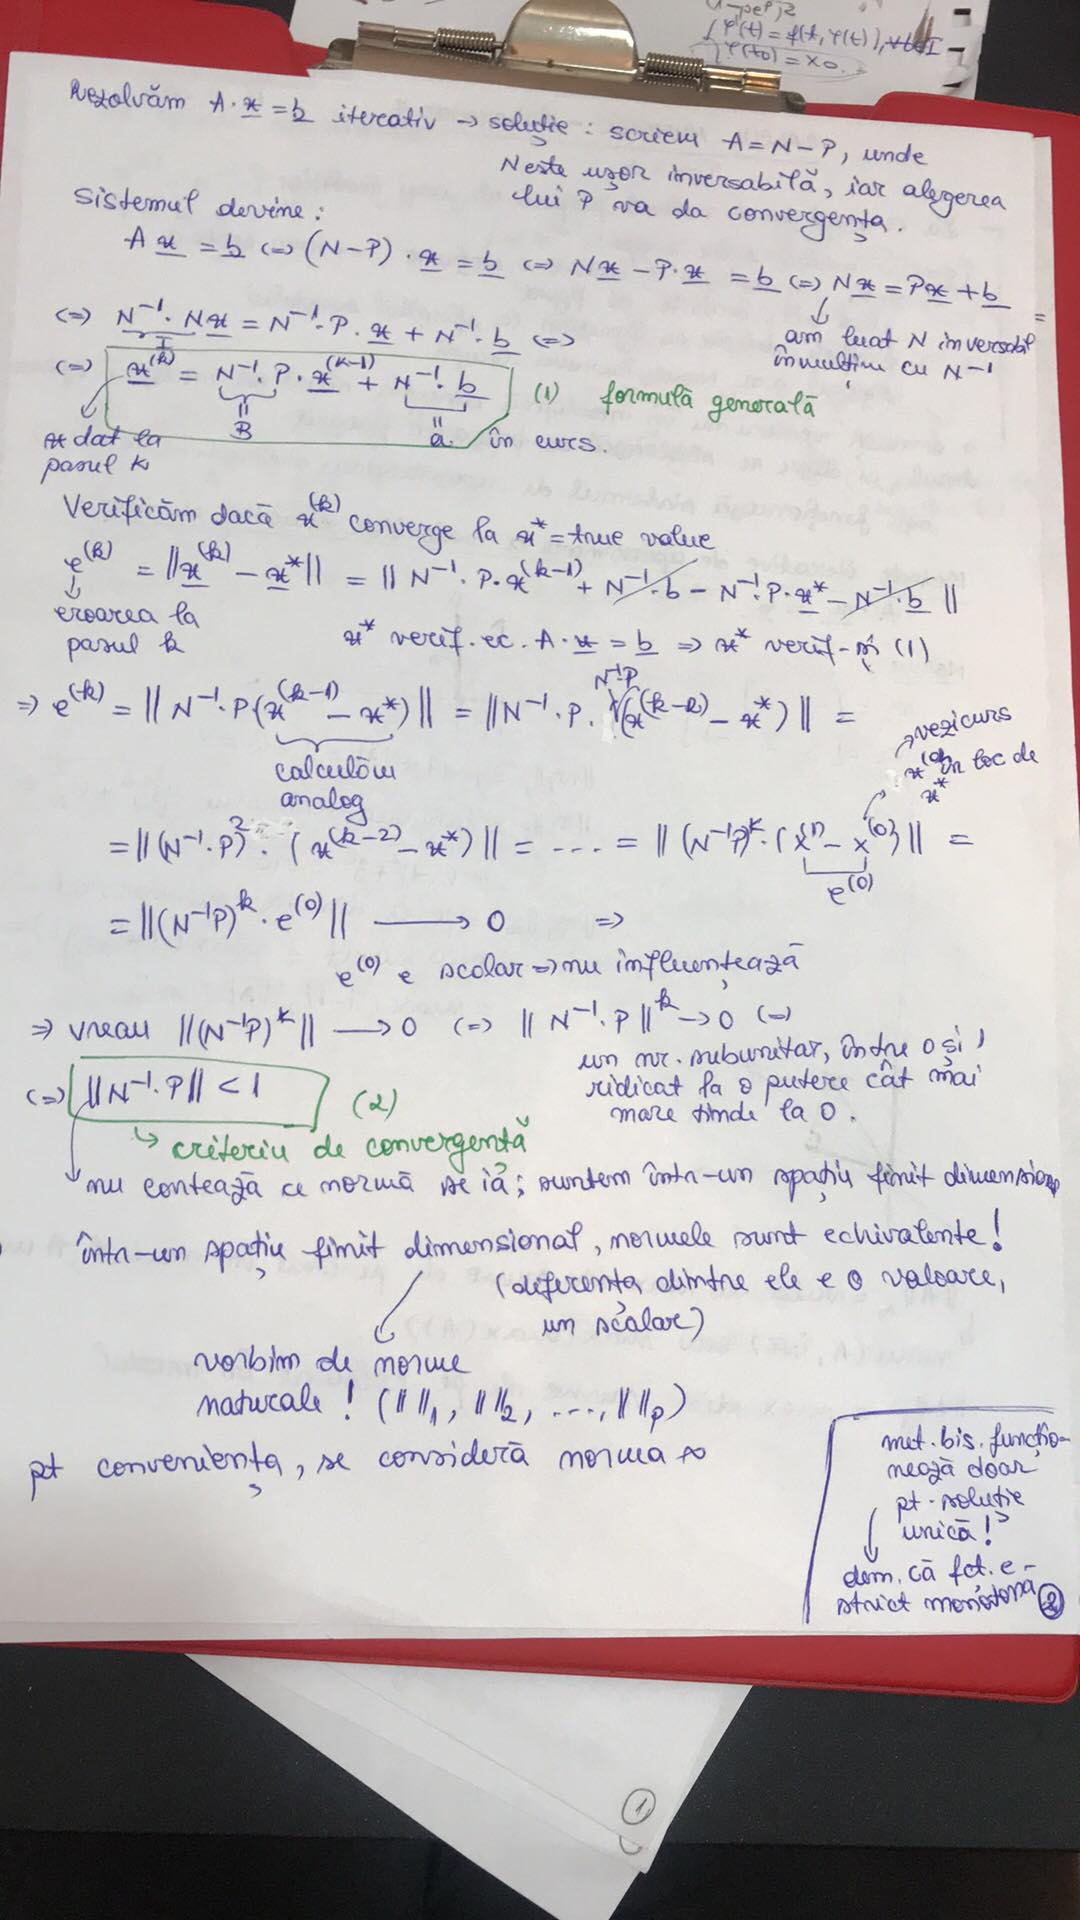 { φ'(t) = f(t, φ(t)), ∀t∈I
φ(t0) = x0.
Rezolvăm A·x = b iterativ → soluție: scriem A = N − P, unde
N este ușor inversabilă, iar alegerea
lui P va da convergența.
Sistemul devine:
A x = b (=) (N−P)·x = b (=) Nx − P·x = b (=) Nx = Px + b =
am luat N inversabil
înmulțim cu N⁻¹
(=) N⁻¹·Nx = N⁻¹·P·x + N⁻¹·b (=)
I
(=) x^(k) = N⁻¹·P·x^(k−1) + N⁻¹·b (1) formulă generală
B a în curs.
x dat la
pasul k
Verificăm dacă x^(k) converge la x* = true value
e^(k) = ‖x^(k) − x*‖ = ‖N⁻¹·P·x^(k−1) + N⁻¹·b − N⁻¹·P·x* − N⁻¹·b‖
eroarea la
pasul k
x* verif. ec. A·x = b ⇒ x* verif. și (1)
⇒ e^(k) = ‖N⁻¹·P(x^(k−1) − x*)‖ = ‖N⁻¹·P·N⁻¹P(x^(k−2) − x*)‖ =
calculăm
analog
vezi curs
x^(0) în loc de
x*
= ‖(N⁻¹·P)²·(x^(k−2) − x*)‖ = .... = ‖(N⁻¹P)^k·(x^(1) − x^(0))‖ =
e^(0)
= ‖(N⁻¹P)^k·e^(0)‖ ⟶ 0 ⇒
e^(0) e scalar ⇒ nu influențează
⇒ vreau ‖(N⁻¹P)^k‖ ⟶ 0 (=) ‖N⁻¹·P‖^k → 0 (=)
un nr. subunitar, între 0 și 1
ridicat la o putere cât mai
mare tinde la 0.
(=) ‖N⁻¹·P‖ < 1 (2)
↳ criteriu de convergență
nu contează ce normă se ia; suntem într-un spațiu finit dimensional
într-un spațiu finit dimensional, normele sunt echivalente!
(diferența dintre ele e o valoare,
un scalar)
vorbim de norme
naturale! (‖ ‖₁, ‖ ‖₂, ..., ‖ ‖p)
pt conveniența, se consideră norma ∞
met. bis. funcțio-
nează doar
pt. soluție
unică!
dem. că fct. e
strict monotonă
2
1